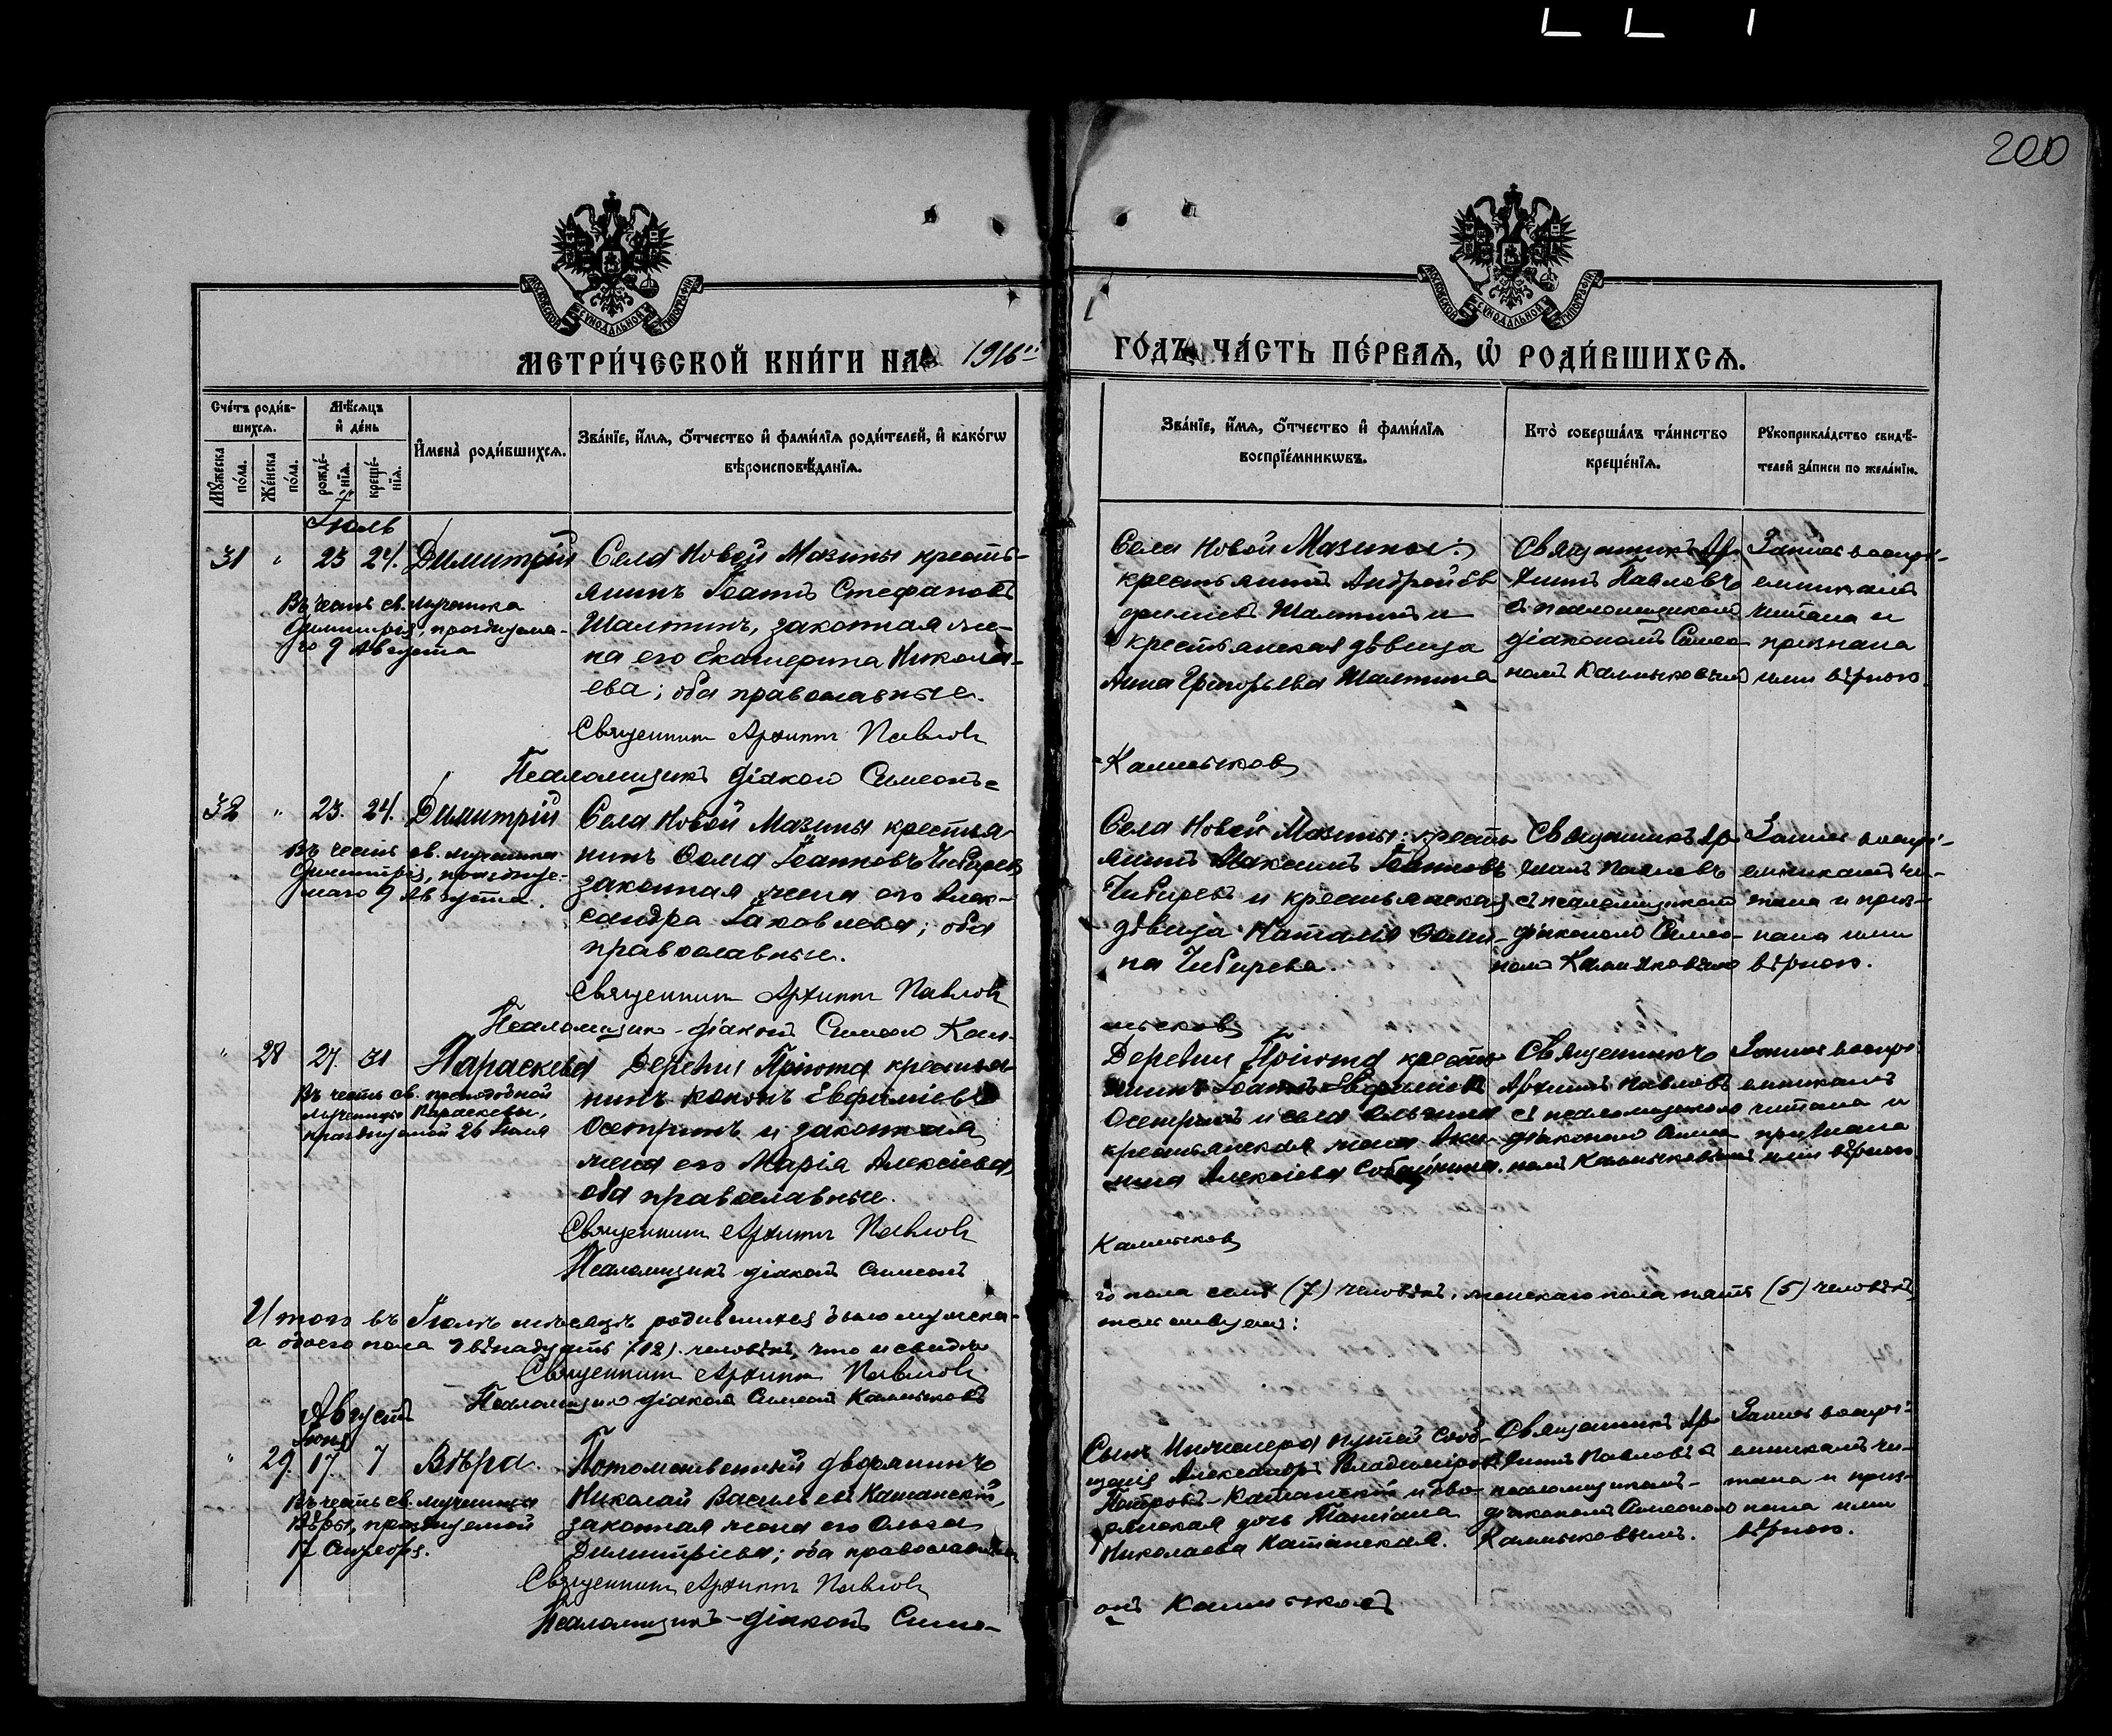 200
МОСКОВСКОЙ СѴНОДАЛЬНОЙ ТИПОГРАФІИ
МОСКОВСКОЙ СѴНОДАЛЬНОЙ ТИПОГРАФІИ
МЕТРИ́ЧЕСКОЙ КНИ́ГИ НА 1916 ГО́ДЪ, ЧА́СТЬ ПЕ́РВАЯ, Ѿ РОДИ́ВШИХСЯ.
Сче́тъ роди́в-
шихся.
Мѣ́сяцъ
и҆ де́нь
Му́жеска
по́ла.
Же́нска
по́ла.
рожде́-
нїя.
креще́-
нїя.
И҆мена̀ роди́вшихся.
Зва́нїе, и҆́мя, ѻ҆́тчество и҆ фами́лїя роди́телей, и҆ како́гѡ
вѣроисповѣ́данїя.
Зва́нїе, и҆́мя, ѻ҆́тчество и҆ фами́лїя
воспрїе́мникѡвъ.
Кто̀ соверша́лъ та́инство
креще́нїя.
Рꙋкоприкла́дство свидѣ́-
телей за́писи по жела́нїю.
Іюль
31 " 23 24. Димитрій
Въ честь св. мученика
Димитрія, празднуема-
го 9 Августа
Села Новой Мазины кресть-
янинъ Іоаннъ Стефановъ
Шалтинъ, законная же-
на его Екатерина Никола-
ева; оба православные.
Священник Архипп Павлов
Псаломщикъ діаконъ Симеонъ
Села Новой Мазины:
крестьянинъ Андрей Ев
фиміевъ Шалтинъ и
крестьянская дѣвица
Анна Григорьева Шалтина
Калмыков
Священникъ Ар-
хиппъ Павловъ
съ псаломщикомъ
діакономъ Симео-
номъ Калмыковымъ
Запись воспрі-
емникамъ
читана и
признана
ими вѣрною.
32 " 23. 24. Димитрій
Въ честь св. мученика
Димитрія, празднуе-
маго 9 Августа.
Села Новой Мазины крестья
нинъ Ѳома Іоанновъ Чибиревъ
законная жена его Алек-
сандра Іаковлева; оба
православные.
Священник Архипп Павлов
Псаломщик-діаконъ Симеон Кал-
Села Новой Мазины: кресть
янинъ Максимъ Іоанновъ
Чибиревъ и крестьянская
дѣвица Наталія Ѳоми-
на Чибирева.
мыков
Священникъ Ар-
хиппъ Павловъ
съ псаломщикомъ
діакономъ Симео-
номъ Калмыковымъ
Запись воспрі-
емникамъ чи-
тана и приз-
нана ими
вѣрною.
" 28 27. 31 Параскева
Въ честь св. преподобной
мученицы Параскевы,
празднуемой 26 Іюля
Деревни Пріюта крестья-
нинъ Кононъ Евфиміевъ
Осетринъ и законная
жена его Марія Алексіева,
оба православные.
Священник Архипп Павлов
Псаломщикъ діаконъ Симеонъ
Деревни Пріюта кресть-
янинъ Іоаннъ Евфиміевъ
Осетринъ и села
крестьянская жена
Алексіева
Калмыков
Священникъ
Архиппъ Павловъ
съ псаломщикомъ
діакономъ Симео-
номъ Калмыковымъ
Запись воспрі-
емникамъ
читана и
признана
ими вѣрною
Итого въ Іюлѣ мѣсяцѣ родившихся было мужска-
го пола семь (7) человѣкъ, женскаго пола пять (5) человѣкъ,
а обоего пола двѣнадцать (12) человѣкъ, что и свидѣ-
тельствуемъ:
Священник Архипп Павлов
Псаломщикъ діаконъ Симеонъ Калмыковъ
Августъ
Іюня
" 29. 17 7 Вѣра
Въ честь св. мученицы
Вѣры, празднуемой
17 Сентября.
Потомственный дворянинъ
Николай Васильевъ Катанскій,
законная жена его Ольга
Димитріева; оба православные
Священник Архипп Павлов
Псаломщикъ-діаконъ Симе-
Сынъ Инженера путей Сооб-
щенія Александръ Владиміровъ
Петровъ-Катанскій и дво-
рянская дочь Татіана
Николаева Катанская.
онъ Калмыковъ
Священникъ Ар-
хиппъ Павловъ съ
псаломщикомъ-
діакономъ Симеономъ
Калмыковымъ.
Запись воспрі-
емникамъ чи-
тана и приз-
нана ими
вѣрною.